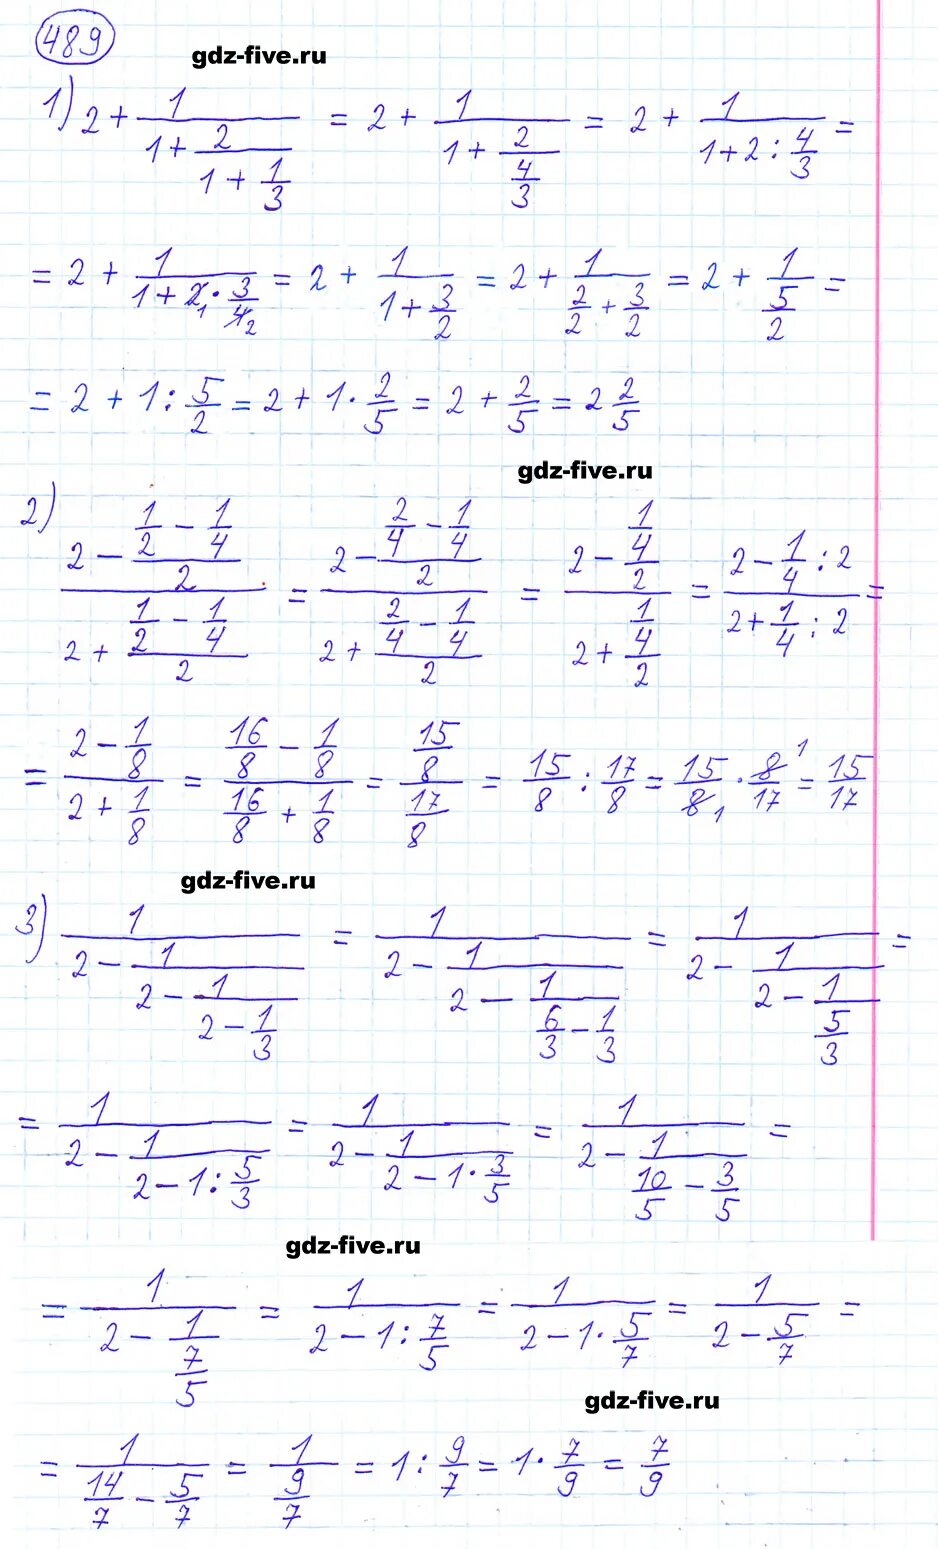 489
gdz-five.ru
1) 2 + 1/(1 + 2/(1 + 1/3)) = 2 + 1/(1 + 2/(4/3)) = 2 + 1/(1 + 2 : 4/3) =
= 2 + 1/(1 + 2₁ · 3/4₂) = 2 + 1/(1 + 3/2) = 2 + 1/(2/2 + 3/2) = 2 + 1/(5/2) =
= 2 + 1 : 5/2 = 2 + 1 · 2/5 = 2 + 2/5 = 2 2/5
gdz-five.ru
2) (2 − (1/2 − 1/4)/2)/(2 + (1/2 − 1/4)/2) = (2 − (2/4 − 1/4)/2)/(2 + (2/4 − 1/4)/2) = (2 − (1/4)/2)/(2 + (1/4)/2) = (2 − 1/4 : 2)/(2 + 1/4 : 2) =
= (2 − 1/8)/(2 + 1/8) = (16/8 − 1/8)/(16/8 + 1/8) = (15/8)/(17/8) = 15/8 : 17/8 = 15/8₁ · 8¹/17 = 15/17
gdz-five.ru
3) 1/(2 − 1/(2 − 1/(2 − 1/3))) = 1/(2 − 1/(2 − 1/(6/3 − 1/3))) = 1/(2 − 1/(2 − 1/(5/3))) =
= 1/(2 − 1/(2 − 1 : 5/3)) = 1/(2 − 1/(2 − 1 · 3/5)) = 1/(2 − 1/(10/5 − 3/5)) =
gdz-five.ru
= 1/(2 − 1/(7/5)) = 1/(2 − 1 : 7/5) = 1/(2 − 1 · 5/7) = 1/(2 − 5/7) =
gdz-five.ru
= 1/(14/7 − 5/7) = 1/(9/7) = 1 : 9/7 = 1 · 7/9 = 7/9